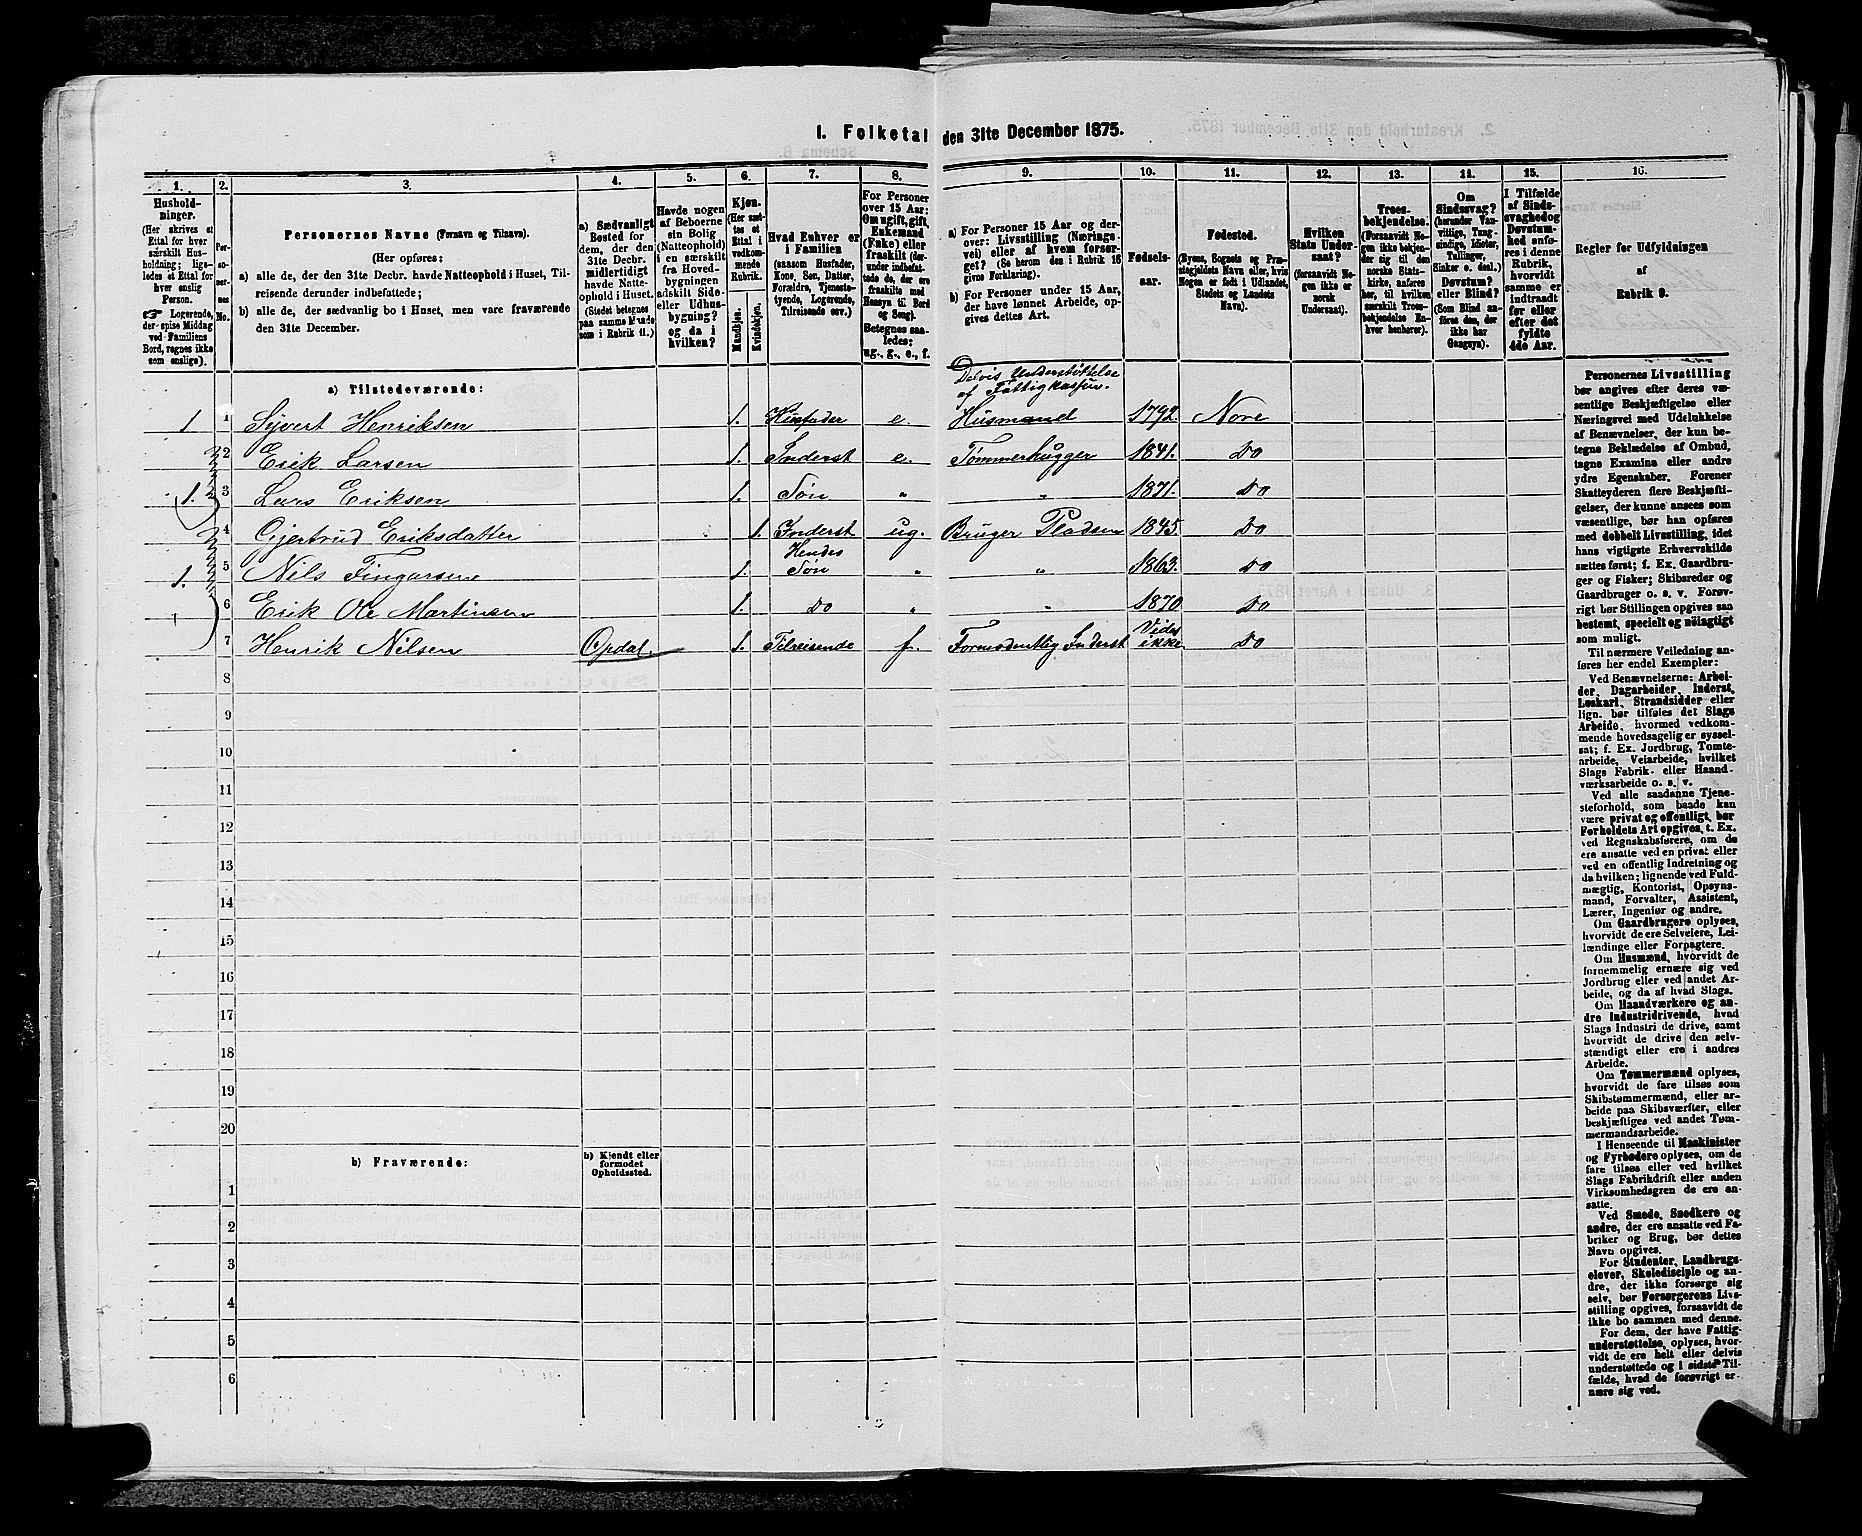 1. Folketal den 31te December 1875.
1. 2. 3. 4. 5. 6. 7. 8. 9. 10. 11. 12. 13. 14. 15. 16.
Hushold-
ninger.
(Her skrives et
Ettal for hver
særskilt Hus-
holdning; lige-
ledes et Ettal for
hver enslig
Person.
☞ Logerende,
der spise Middag
ved Familiens
Bord, regnes ikke
som enslige).
Per-
so-
ner-
nes
No.
Personernes Navne (Fornavn og Tilnavn).
(Her opføres:
a) alle de, der den 31te Decbr. havde Natteophold i Huset, Til-
reisende derunder indbefattede;
b) alle de, der sædvanlig bo i Huset, men vare fraværende
den 31te December.
a) Sædvanligt
Bosted for
dem, der den
31te Decbr.
midlertidigt
havde Natte-
ophold i Huset.
(Stedet betegnes
paa samme Maade
som i Rubrik 11.)
Havde nogen
af Beboerne
sin Bolig
(Natteophold)
i en særskilt
fra Hoved-
bygningen
adskilt Side-
eller Udhus-
bygning?
og da i
hvilken?
Kjøn.
(Her sæt-
tes et
Ettal i
vedkom-
mende
Rubrik.
Mandkjøn.
Kvindekjøn.
Hvad Enhver er
i Familien
(saasom Husfader,
Kone, Søn, Datter,
Forældre, Tjeneste-
tyende, Logerende,
Tilreisende osv.)
For Personer
over 15 Aar:
Om ugift, gift,
Enkemand
(Enke) eller
fraskilt (der-
under indbefat-
tede de, der ere
fraskilte med
Hensyn til Bord
og Seng).
Betegnes saa-
ledes:
ug., g., e., f.
a) For Personer 15 Aar og der-
over: Livsstilling (Nærings-
vei) eller af hvem forsør-
get? (Se herom den i Rubrik 16
givne Forklaring).
b) For Personer under 15 Aar,
der have lønnet Arbeide, op-
gives dettes Art.
Fødsels-
aar.
Fødested.
(Byens, Sognets og Præ-
stegjeldets Navn eller, hvis
Nogen er født i Udlandet,
Stedets og Landets
Navn).
Hvilken
Stats Under-
saat?
(forsaavidt No-
gen ikke er
norsk
Undersaat).
Troes-
bekjendelse.
(Forsaavidt No-
gen ikke bekjen-
der sig til den
norske Stats-
kirke, anføres
her, til hvilken
særskilt Troes-
bekjendelse En-
hver henhører).
Om
Sindssvag?
(herunder Van-
vittige, Tung-
sindige, Idioter,
Tullinger,
Sinker o. desl.)
Døvstum?
eller Blind?
(Som Blind an-
føres den, der
ikke har
Gangsyn).
I Tilfælde
af Sinds-
svaghed og
Døvstum-
hed anfø-
res i denne
Rubrik,
hvorvidt
samme er
indtraadt
før eller
efter det
fyldte
4de Aar.
Regler for Udfyldningen
af
Rubrik 9.
a) Tilstedeværende:
Delvis Understøttelse
af Fattigkassen.
1 1 Syvert Henriksen 1. Husfader e. Husmand 1792. Nore
2 Erik Larsen 1. Inderst e. Tømmerhugger 1841. Do
1. 3 Lars Eriksen 1. Søn " " 1871. Do
4 Gjertrud Eriksdatter 1. Inderst ug. Bruger Pladsen 1845. Do
1. 5 Nils Fingarsen 1. Hendes Søn " " 1863. Do
6 Erik Ole Martinsen 1. Do " " 1870 Do
7 Henrik Nilsen Opdal. 1. Tilreisende f. Formodentlig Inderst Vides ikke Do
8
9
10
11
12
13
14
15
16
17
18
19
20
b) Fraværende:
b) Kjendt eller
formodet
Opholdssted.
1
2
3
4
5
6
Personernes Livsstilling
bør angives efter deres væ-
sentlige Beskjæftigelse eller
Næringsvei med Udelukkelse
af Benævnelser, der kun be-
tegne Beklædelse af Ombud,
tagne Examina eller andre
ydre Egenskaber. Forener
Skatteyderen flere Beskjæfti-
gelser, der kunne ansees som
væsentlige, bør han opføres
med dobbelt Livsstilling, idet
hans vigtigste Erhvervskilde
sættes først; f. Ex. Gaardbru-
ger og Fisker; Skibsreder og
Gaardbruger o. s. v. Forøv-
rigt bør Stillingen opgives saa
bestemt, specielt og nøiagtigt
som muligt.
Til nærmere Veiledning an-
føres her endel Exempler:
Ved Benævnelserne: Arbei-
der, Dagarbeider, Inderst,
Løskarl, Strandsidder eller
lign. bør tilføies det Slags
Arbeide, hvormed vedkom-
mende hovedsagelig er syssel-
sat; f. Ex. Jordbrug, Tomte-
arbeide, Veiarbeide, hvilket
Slags Fabrik- eller Haand-
værksarbeide o. s. v.
Ved alle saadanne Tjene-
steforhold, som baade kan
være privat og offentligt, bør
Forholdets Art opgives, t. Ex.
ved Regnskabsførere, om de
ere ansatte ved en privat eller
ved en offentlig Indretning og
da hvilken; lignende ved Fuld-
mægtig, Kontorist, Opsyns-
mand, Forvalter, Assistent,
Lærer, Ingeniør og andre.
Om Gaardbrugere oplyses,
hvorvidt de ere Selveiere, Lei-
lændinge eller Forpagtere.
Om Husmænd, hvorvidt de
fornemmelig ernære sig ved
Jordbrug eller ved andet Ar-
beide, og da af hvad Slags.
Om Haandværkere og an-
dre Industridrivende, hvad
Slags Industri de drive, samt
hvorvidt de drive den selv-
stændigt eller ere i andres
Arbeide.
Om Tømmermænd oplyses,
hvorvidt de fare tilsøs som
Skibstømmermænd, eller ar-
beide paa Skibsværfter, eller
beskjæftiges ved andet Tøm-
mermandsarbeide.
I Henseende til Maskinister
og Fyrbødere oplyses, om de
fare tilsøs eller ved hvilket
Slags Fabrikdrift eller anden
Virksomhedsgren de ere an-
satte.
Ved Smede, Snedkere og
andre, der ere ansatte ved Fa-
briker og Brug, bør dettes
Navn opgives.
For Studenter, Landbrugs-
elever, Skoledisciple og an-
dre, der ikke forsørge sig
selv, bør Forsørgerens Livs-
stilling opgives, forsaavidt de
ikke bo sammen med denne.
For dem, der have Fattig-
understøttelse, oplyses, hvor-
vidt de ere helt eller delvis
understøttede og i sidste Til-
fælde, hvad de forøvrigt er-
nære sig ved.